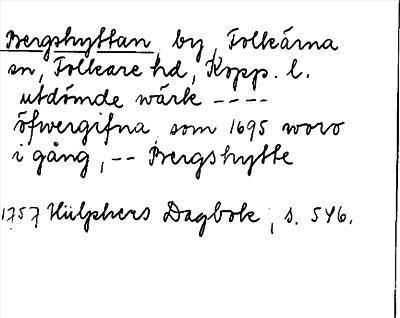 Bergshyttan, by, Folkärna
sn, Folkare hd, Kopp. l.
utdömde wärk ----
öfwergifna, som 1695 woro
i gång, -- Bergshytte
1757 Hülphers Dagbok, s. 546.